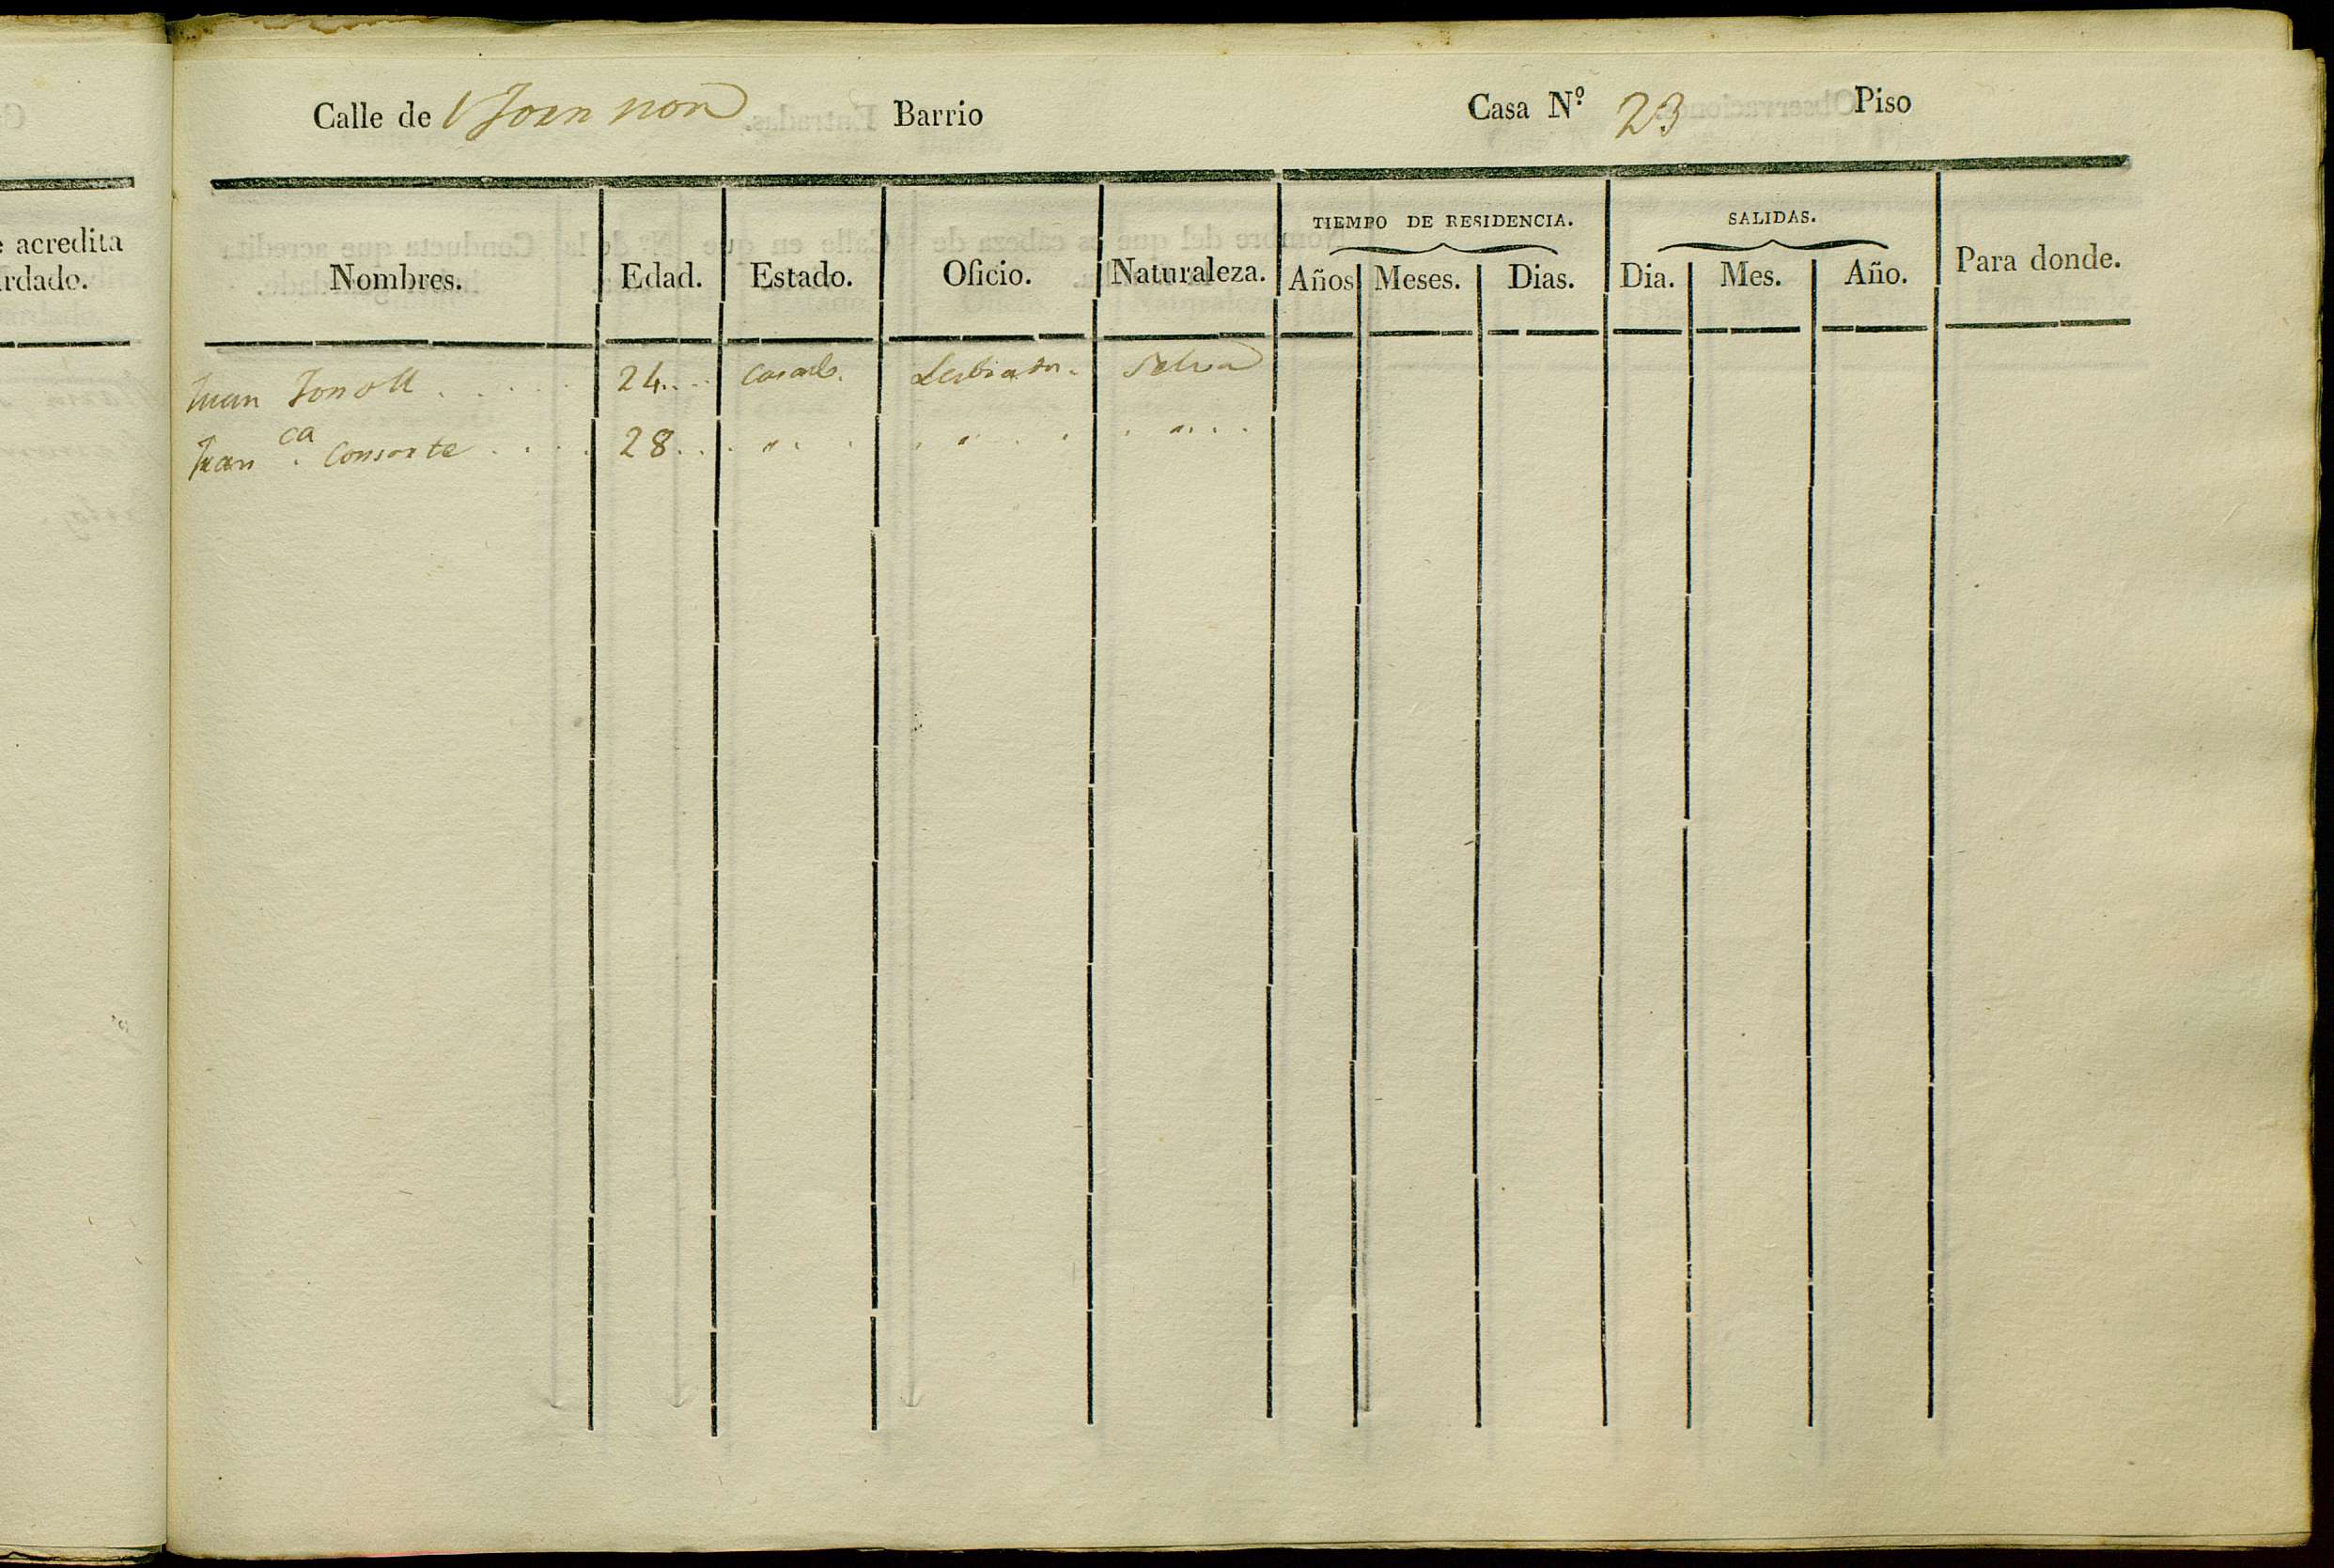 acredita
rdado.
Calle de Forn nou Barrio Casa Nº 23 Piso
TIEMPO DE RESIDENCIA. SALIDAS.
Nombres. Edad. Estado. Oficio. Naturaleza. Años Meses. Dias. Dia. Mes. Año. Para donde.
Juan 24.... casado. Selva
Franca. Consorte . . . . 28. . . . " . . . " . . . " . .